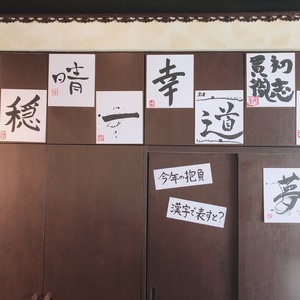 穏
晴
一
幸
道
初志
貫徹
夢
今年の抱負
漢字で表すと?